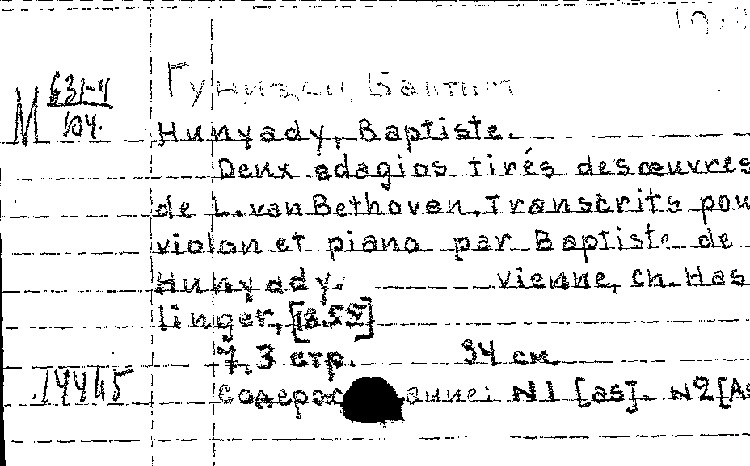 М 631-4
104.
Гуниади, Баптист
Hunyady, Baptiste.
Deux adagios tirés des œuvres
de L. van Bethoven. Transcrits pou
violon et piano par Baptiste de
Hunyady. Vienne, Ch. Has
linger, [1855]
7, 3 стр. 34 см
14415
N1 [as]. N2 [As